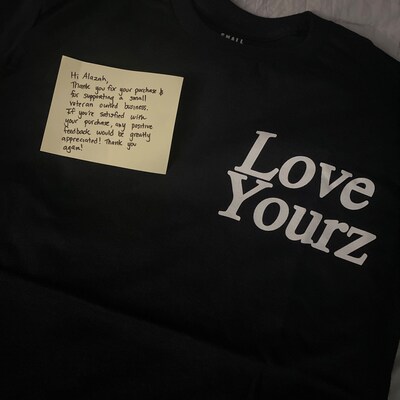 Hi Alazah,
Thank you for your purchase &
for supporting a small
veteran owned business.
If you're satisfied with
your purchase, any positive
feedback would be greatly
appreciated! Thank you
again!
Love
Yourz